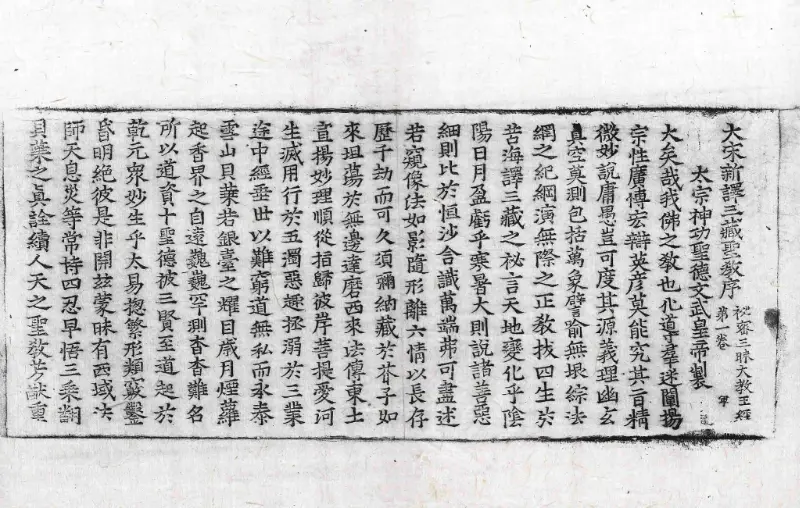 大宋新譯三藏聖教序
秘密三昧大教王經
第一卷
大宗神功聖德文武皇帝製
大矣哉我佛之教也化導羣迷闡揚
宗性廣博宏辯英彦莫能究其旨精
微妙說庸愚豈可度其源義理幽玄
真空莫測包括萬象譬喻無垠綜法
網之紀綱演無際之正教拔四生於
苦海譯三藏之秘言天地變化乎陰
陽日月盈虧乎寒暑大則說諸善惡
細則比於恒沙含識萬端弗可盡述
若窺像法如影隨形離六情以長存
歷千劫而可久須彌納藏於芥子如
來坦蕩於無邊達磨西來法傳東土
宣揚妙理順從指歸彼岸菩提愛河
生滅用行於五濁惡趣拯溺於三業
途中經垂世以難窮道無私而永泰
雪山貝葉若銀臺之耀目歲月煙蘿
起香界之自遠巍巍罕測杳杳難名
所以道資十聖德被三賢至道起於
乾元衆妙生乎太易揔繁形類竅鑿
昏明絕彼是非開玆蒙昧有西域法
師天息災等常持四忍早悟三乘翻
貝葉之眞詮續人天之聖教芳猷重